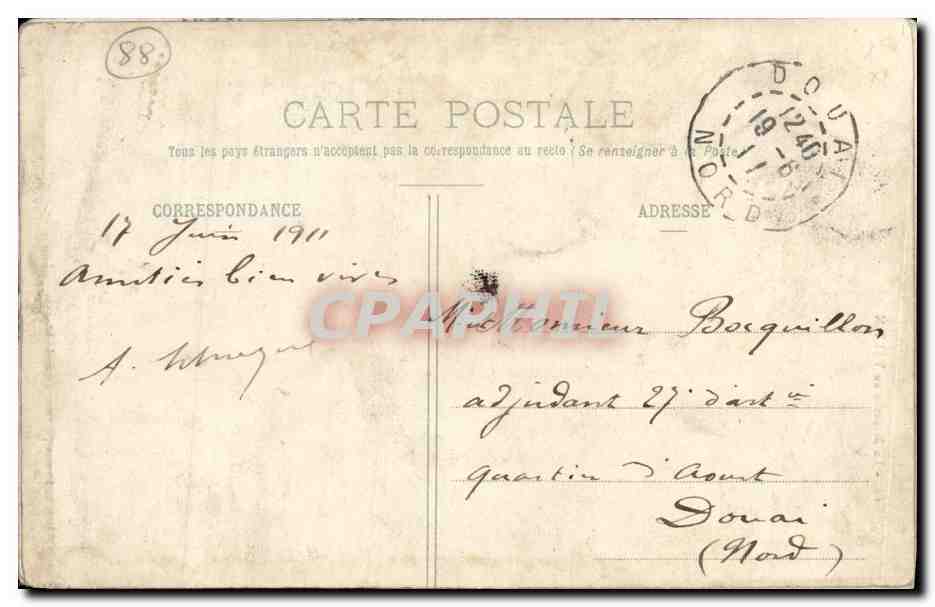 88
CARTE POSTALE
Tous les pays étrangers n'acceptent pas la correspondance au recto (Se renseigner à la Poste)
CORRESPONDANCE
ADRESSE
DOUAI
12 40
19 -6
11
NORD
17 Juin 1911
Amitiés bien vives
A.
CPAPHIL
Monsieur Bocquillon
adjudant 27e d'art ie
quartier d'Aoust
Douai
(Nord)